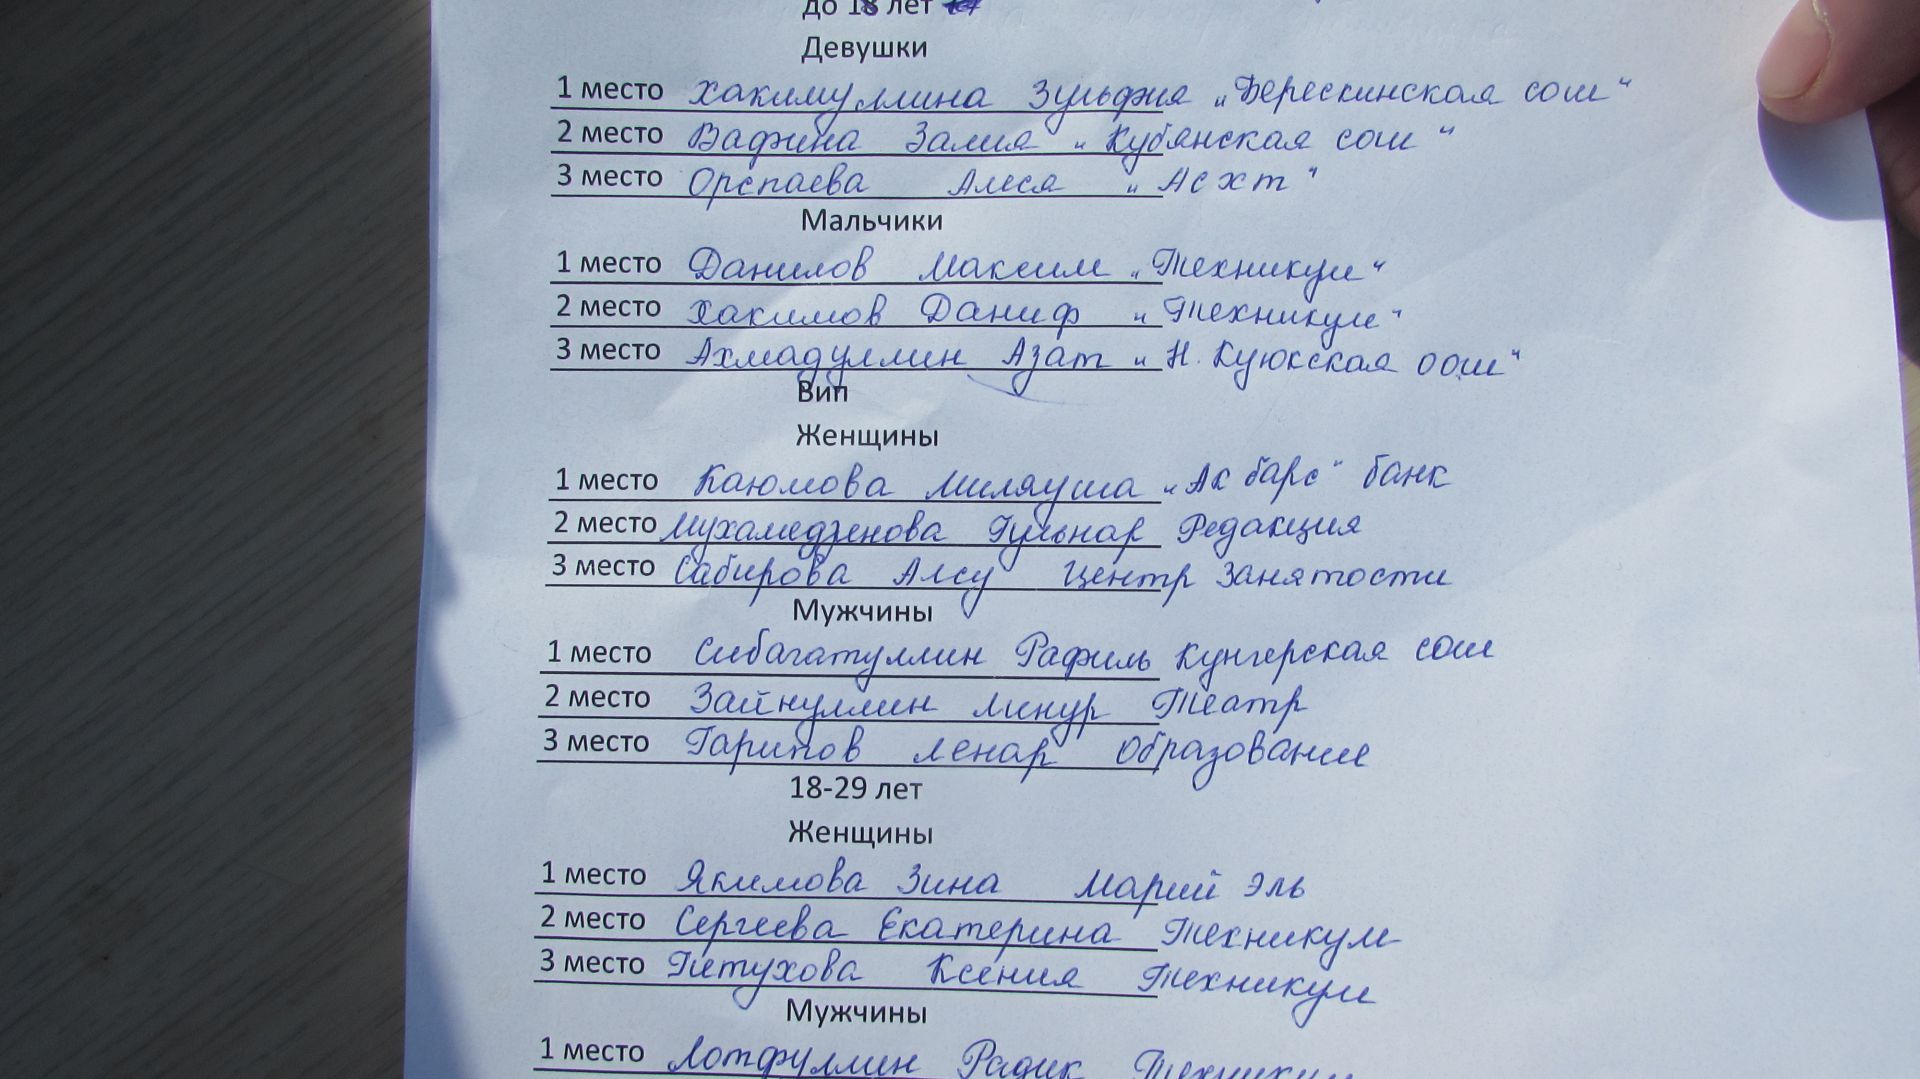 до 18 лет 17
Девушки
1 место Хакимуллина Зульфия „Берескинская сош“
2 место Вафина Залия „Кубянская сош“
3 место Орспаева Алеся „Асхт“
Мальчики
1 место Данилов Максим „Техникум“
2 место Хакимов Даниф „Техникум“
3 место Ахмадуллин Азат „Н. Куюкская оош“
Вип
Женщины
1 место Каюмова Миляуша „Ак барс“ банк
2 место Мухамедзенова Гульнар Редакция
3 место Сабирова Алсу Центр Занятости
Мужчины
1 место Сибагатуллин Рафиль Кунгерская сош
2 место Зайнуллин Линур Театр
3 место Гарипов Ленар Образование
18-29 лет
Женщины
1 место Якимова Зина Марий Эль
2 место Сергеева Екатерина Техникум
3 место Петухова Ксения Техникум
Мужчины
1 место Лотфуллин Радик Техникум